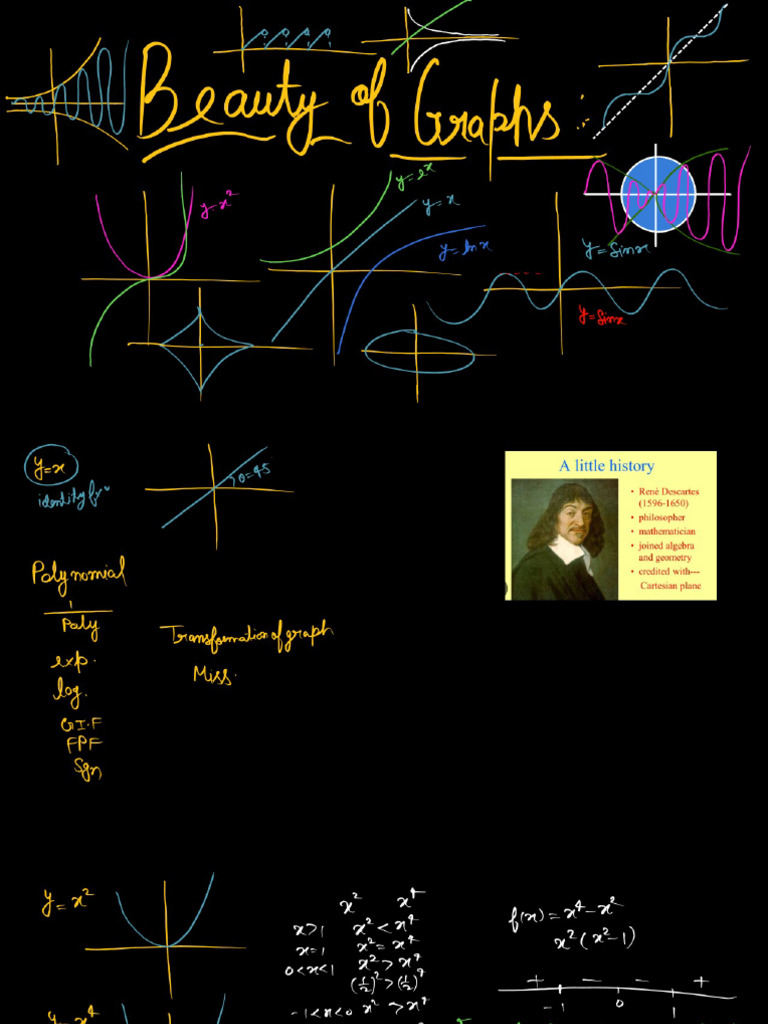 Beauty of Graphs :-
y=x²
y=eˣ
y=x
y=lnx
y=Sinx
y=Sinx
y=x
identity fⁿ
θ=45
A little history
• René Descartes
(1596-1650)
• philosopher
• mathematician
• joined algebra
and geometry
• credited with---
Cartesian plane
Polynomial
1
Poly
exp.
log.
G.I.F
FPF
Sgn
Transformation of graph
Miss.
y=x²
x² x⁴
x>1 x²<x⁴
x=1 x²=x⁴
0<x<1 x²>x⁴
(1/2)²>(1/2)⁴
-1<x<0 x²>x⁴
f(x)=x⁴-x²
x²(x²-1)
+ - - +
-1 0 1
y=x⁴